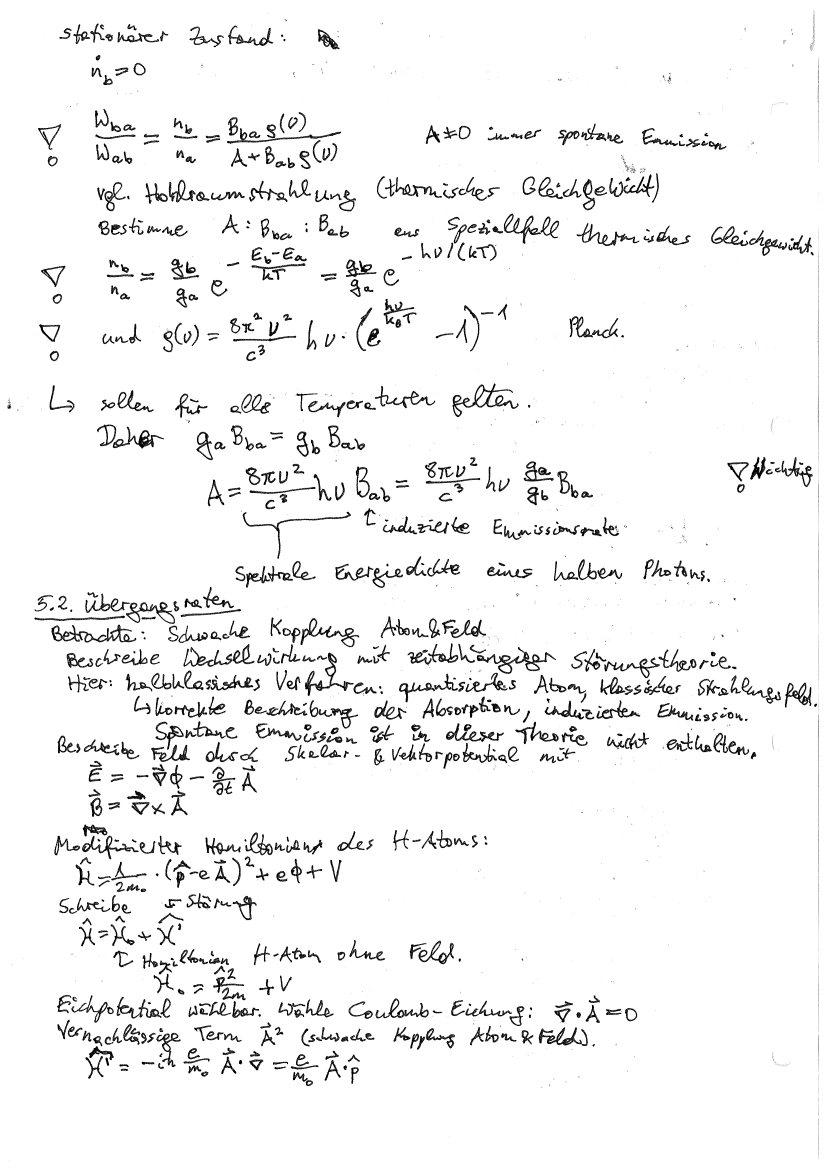 stationärer Zustand:
ṅ_b = 0
▽! W_ba/W_ab = n_b/n_a = B_ba ρ(ν)/(A + B_ab ρ(ν)) A≠0 immer spontane Emmission
vgl. Hohlraumstrahlung (thermisches Gleichgewicht)
Bestimme A : B_ba : B_ab aus Spezialfall thermisches Gleichgewicht.
▽! n_b/n_a = g_b/g_a e^(-(E_b-E_a)/kT) = g_b/g_a e^(-hν/(kT))
▽! und ρ(ν) = 8π²ν²/c³ hν · (e^(hν/k_BT) - 1)^-1 Planck.
↳ sollen für alle Temperaturen gelten.
Daher g_a B_ba = g_b B_ab
A = 8πν²/c³ hν B_ab = 8πν²/c³ hν g_a/g_b B_ba ▽! Wichtig
↑ induzierte Emmissionsrate
Spektrale Energiedichte eines halben Photons.
5.2. Übergangsraten
Betrachte: Schwache Kopplung Atom & Feld
Beschreibe Wechselwirkung mit zeitabhängiger Störungstheorie.
Hier: halbklassisches Verfahren: quantisiertes Atom, klassischer Strahlungsfeld.
↳ korrekte Beschreibung der Absorption, induzierten Emmission.
Spontane Emmission ist in dieser Theorie nicht enthalten.
Beschreibe Feld durch Skalar- & Vektorpotential mit
E⃗ = -∇⃗ϕ - ∂/∂t A⃗
B⃗ = ∇⃗ × A⃗
Modifizierter Hamiltonian des H-Atoms:
Ĥ = 1/2m₀ · (p̂ - e A⃗)² + eϕ + V
Schreibe ↙ Störung
Ĥ = Ĥ₀ + Ĥ'
↑ Hamiltonian H-Atom ohne Feld.
Ĥ₀ = p̂²/2m + V
Eichpotential wählbar. Wähle Coulomb-Eichung: ∇⃗ · A⃗ = 0
Vernachlässige Term A⃗² (schwache Kopplung Atom & Feld).
Ĥ' = -iħ e/m₀ A⃗ · ∇⃗ = e/m₀ A⃗ · p̂